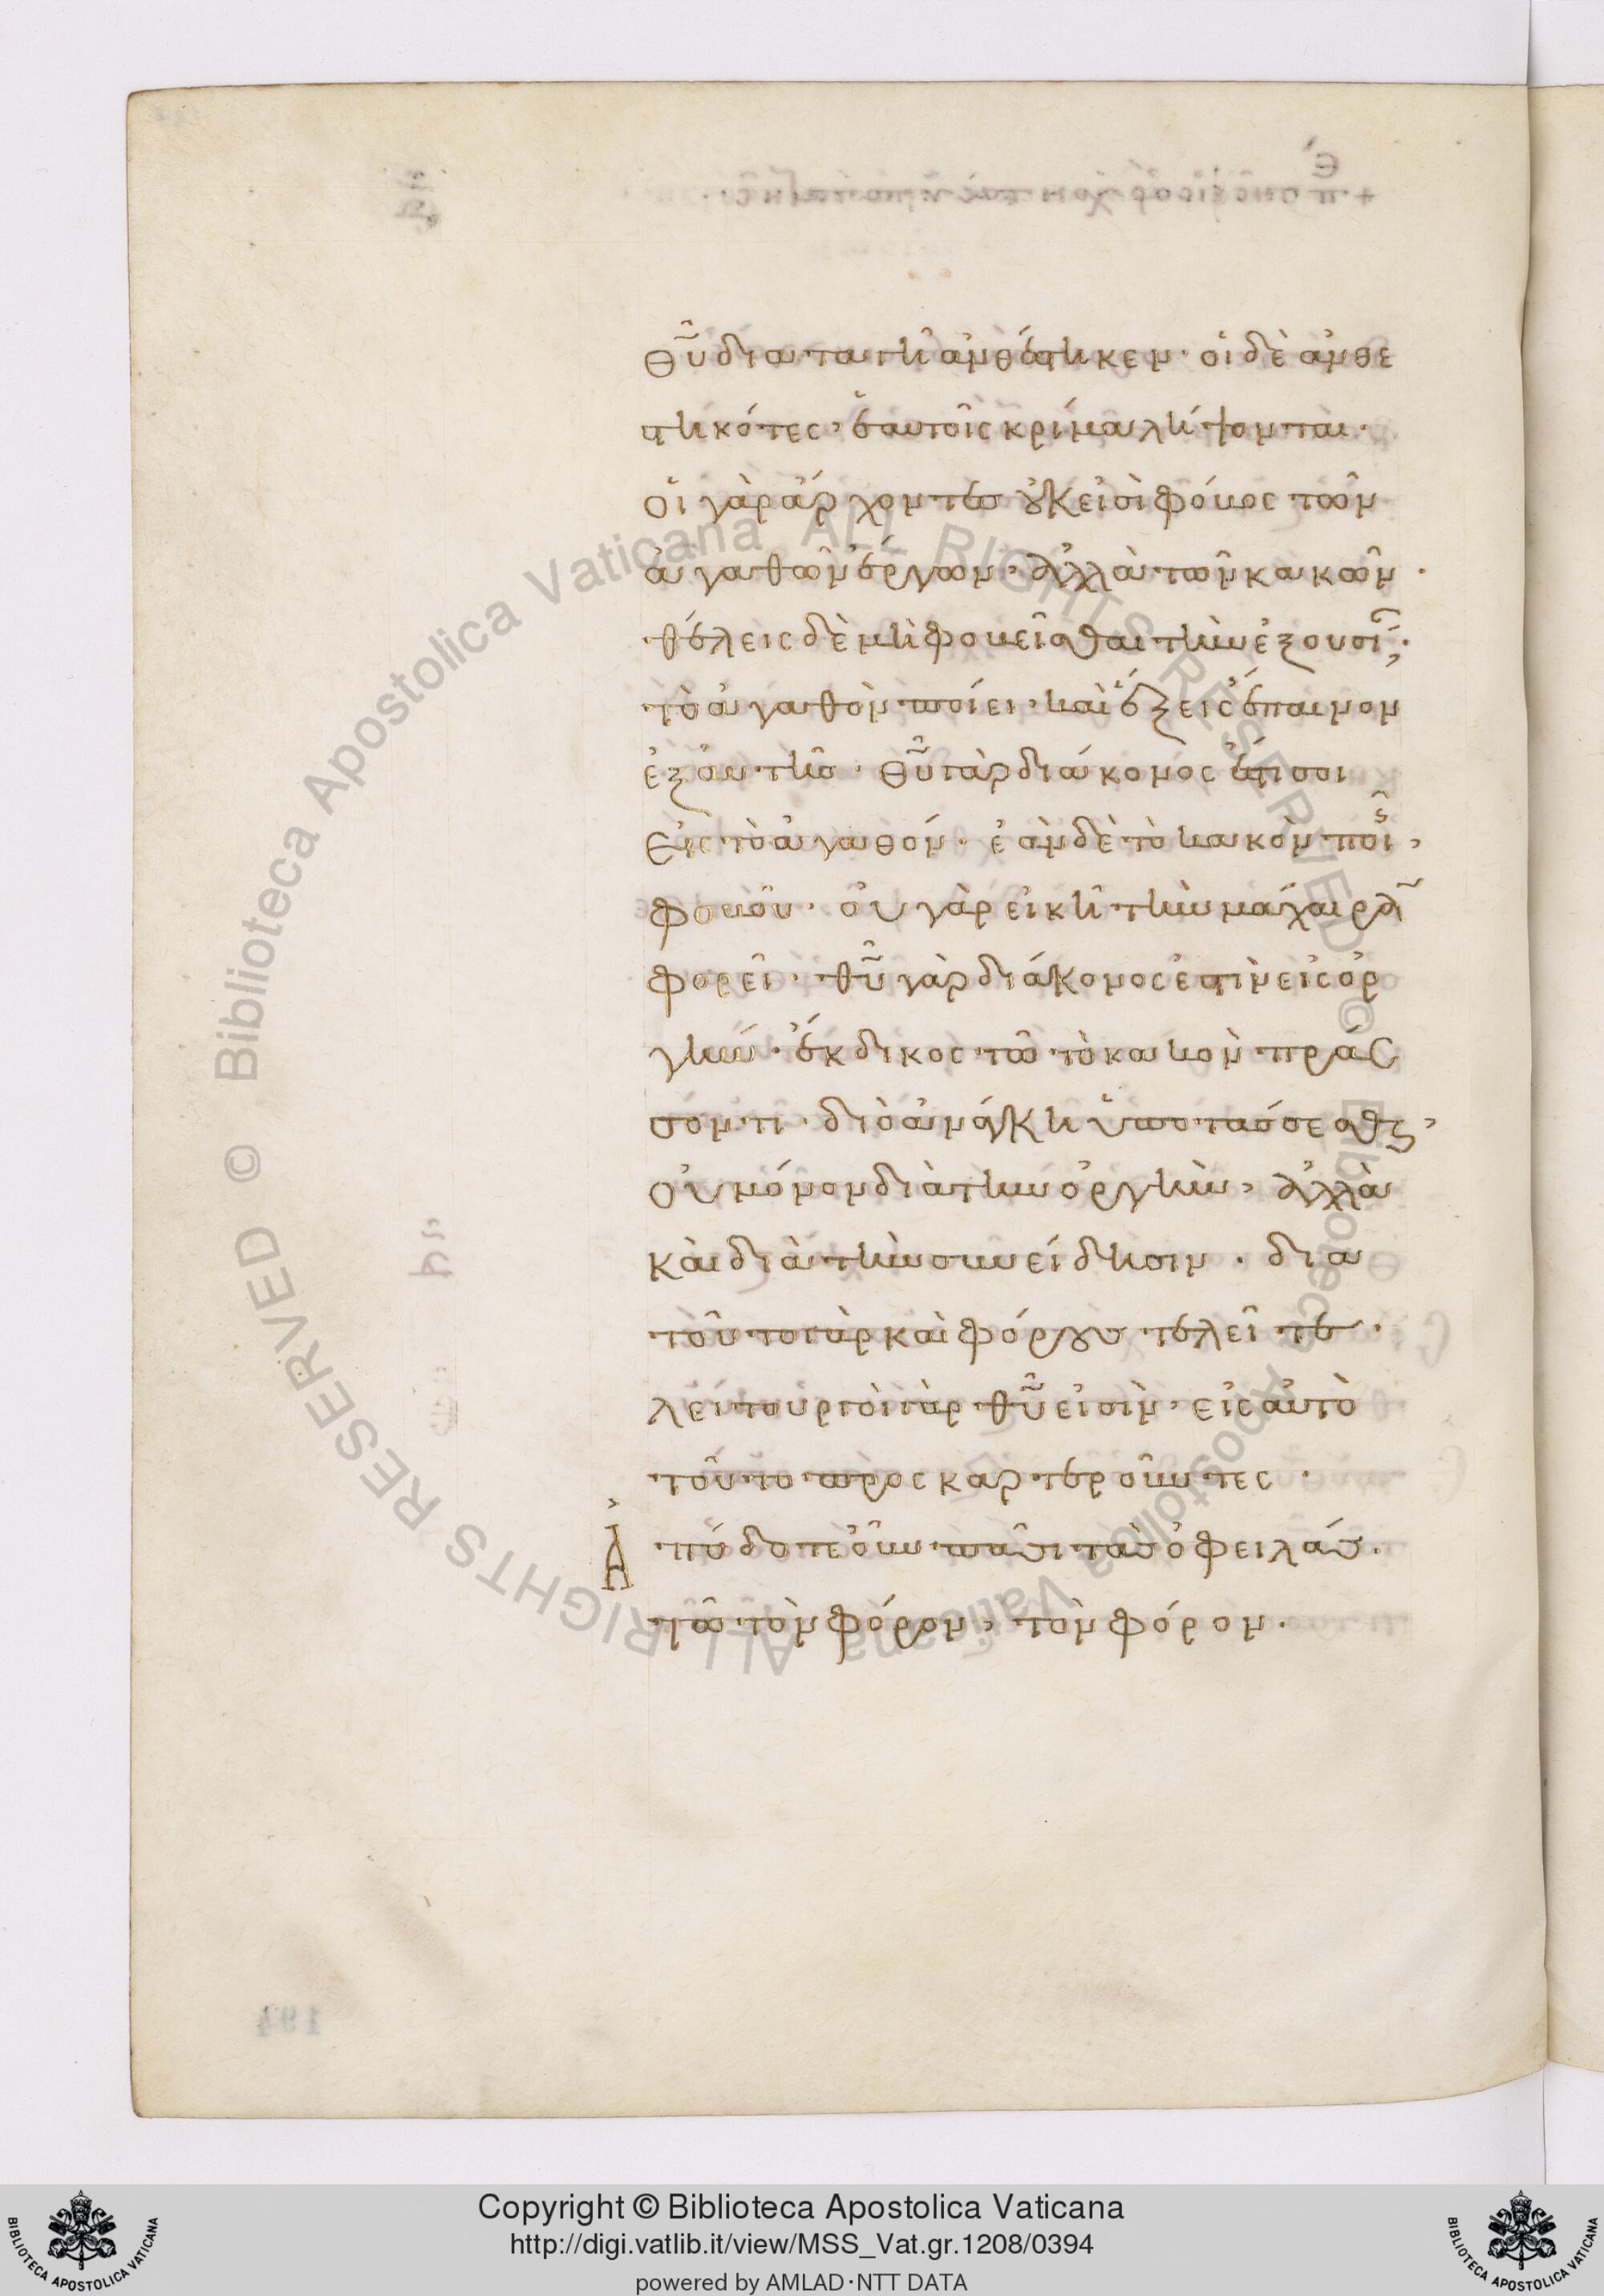 θῦ διαταγῆ ἀνθέστηκεν· οἱ δὲ ἀνθε
στηκότες, ἑαυτοῖς κρίμα λήψονται·
οἱ γὰρ ἄρχοντες οὐκ εἰσὶ φόβος τῶν
ἀγαθῶν ἔργων, ἀλλὰ τῶν κακῶν·
θέλεις δὲ μὴ φοβεῖσθαι τὴν ἐξουσί;
τὸ ἀγαθὸν ποίει, καὶ ἕξεις ἔπαινον
ἐξ αὐτῆς· θῦ γὰρ διάκονος ἐστί σοι
εἰς τὸ ἀγαθόν· ἐὰν δὲ τὸ κακὸν ποῆς,
φοβοῦ· οὐ γὰρ εἰκῆ τὴν μάχαιραν
φορεῖ· θῦ γὰρ διάκονος ἐστὶν εἰς ὀρ
γήν· ἔκδικος τῶ τὸ κακὸν πράσ
σοντι· διὸ ἀνάγκη ὑποτάσσεσθαι,
οὐ μόνον διὰ τὴν ὀργὴν, ἀλλὰ
καὶ διὰ τὴν συνείδησιν· δια
τοῦτο γὰρ καὶ φόρους τελεῖτε·
λειτουργοὶ γὰρ θῦ εἰσὶν, εἰς αὐτὸ
τοῦτο προσκαρτεροῦντες·
Ἀπόδοτε οὖν πᾶσι τὰς ὀφειλάς·
τῶ τὸν φόρον, τὸν φόρον·
© Biblioteca Apostolica Vaticana ALL RIGHTS RESERVED
© Biblioteca Apostolica Vaticana ALL RIGHTS RESERVED
Copyright © Biblioteca Apostolica Vaticana
http://digi.vatlib.it/view/MSS_Vat.gr.1208/0394
powered by AMLAD·NTT DATA
BIBLIOTECA APOSTOLICA VATICANA
BIBLIOTECA APOSTOLICA VATICANA